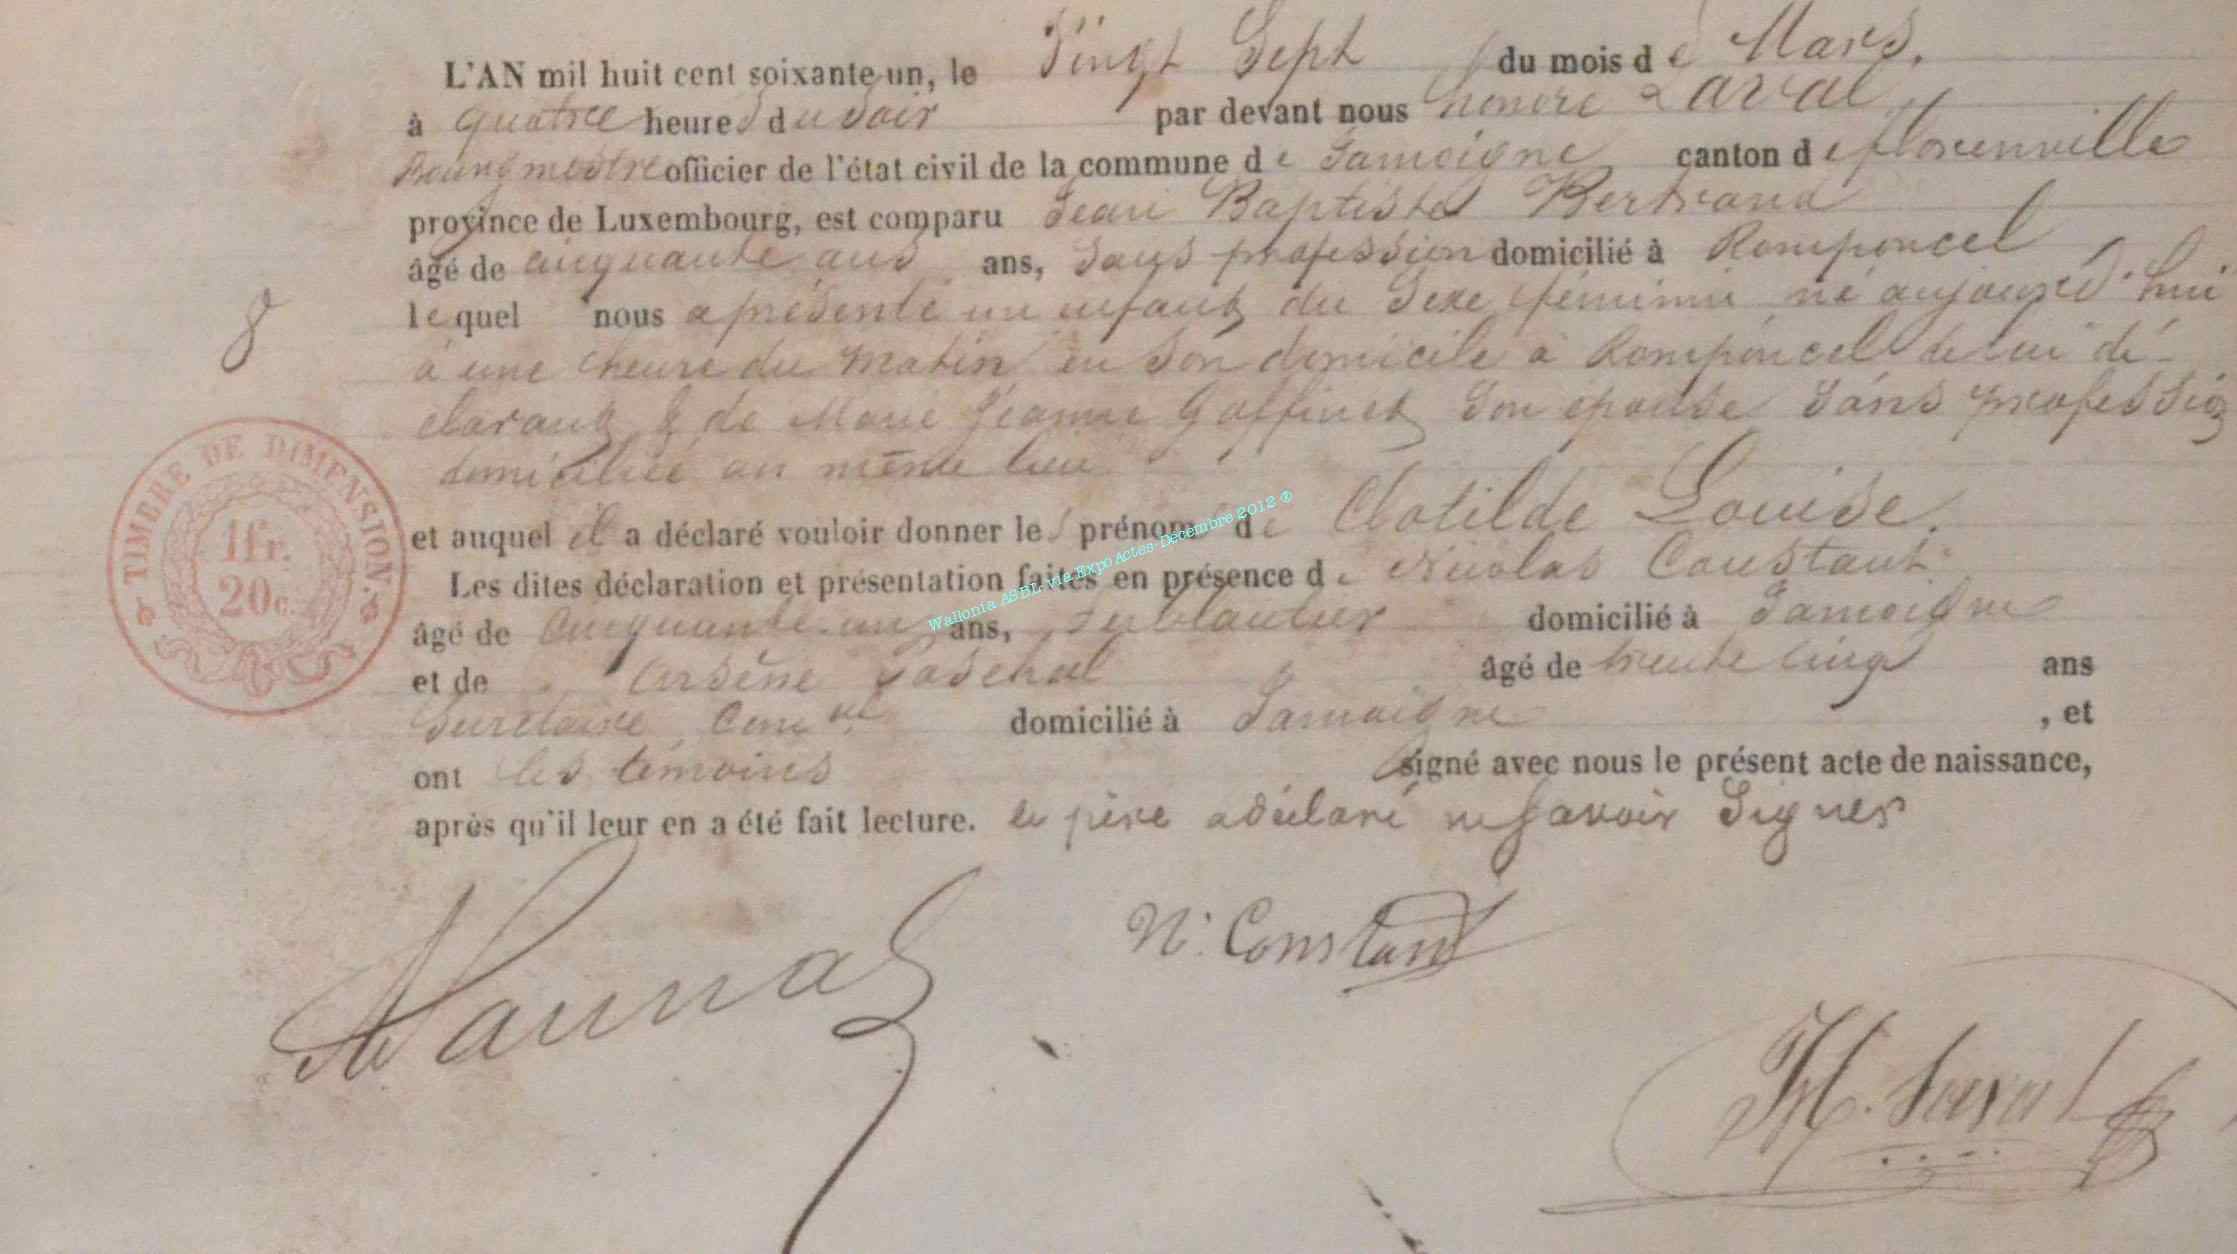 L'AN mil huit cent soixante un, le Vingt Sept du mois de Mars.
à quatre heures du soir par devant nous honoré Laval
Bourgmestre officier de l'état civil de la commune de Jamoigne canton de florenville
province de Luxembourg, est comparu Jean Baptiste Bertrand
âgé de cinquante ans ans, Sans profession domicilié à Romponcel
le quel nous a présenté un enfant du Sexe féminin né aujourd'hui
à une heure du matin en Son domicile à Romponcel de lui dé-
clarant & de Marie Jeanne Goffinet Son épouse Sans profession
domiciliée au même lieu
et auquel il a déclaré vouloir donner les prénoms de Clotilde Louise.
Les dites déclaration et présentation faites en présence de Nicolas Constant
âgé de Cinquante un ans, ferblantier domicilié à Jamoigne
et de Arsène âgé de trente cinq ans
Secretaire Comal domicilié à Jamoigne , et
ont les témoins signé avec nous le présent acte de naissance,
après qu'il leur en a été fait lecture. le père a déclaré ne Savoir Signer
8
TIMBRE DE DIMENSION.
1fr.
20c.
Wallonia ASBL via Expo Actes-Décembre 2012 ®
N. Constant
H. Laval